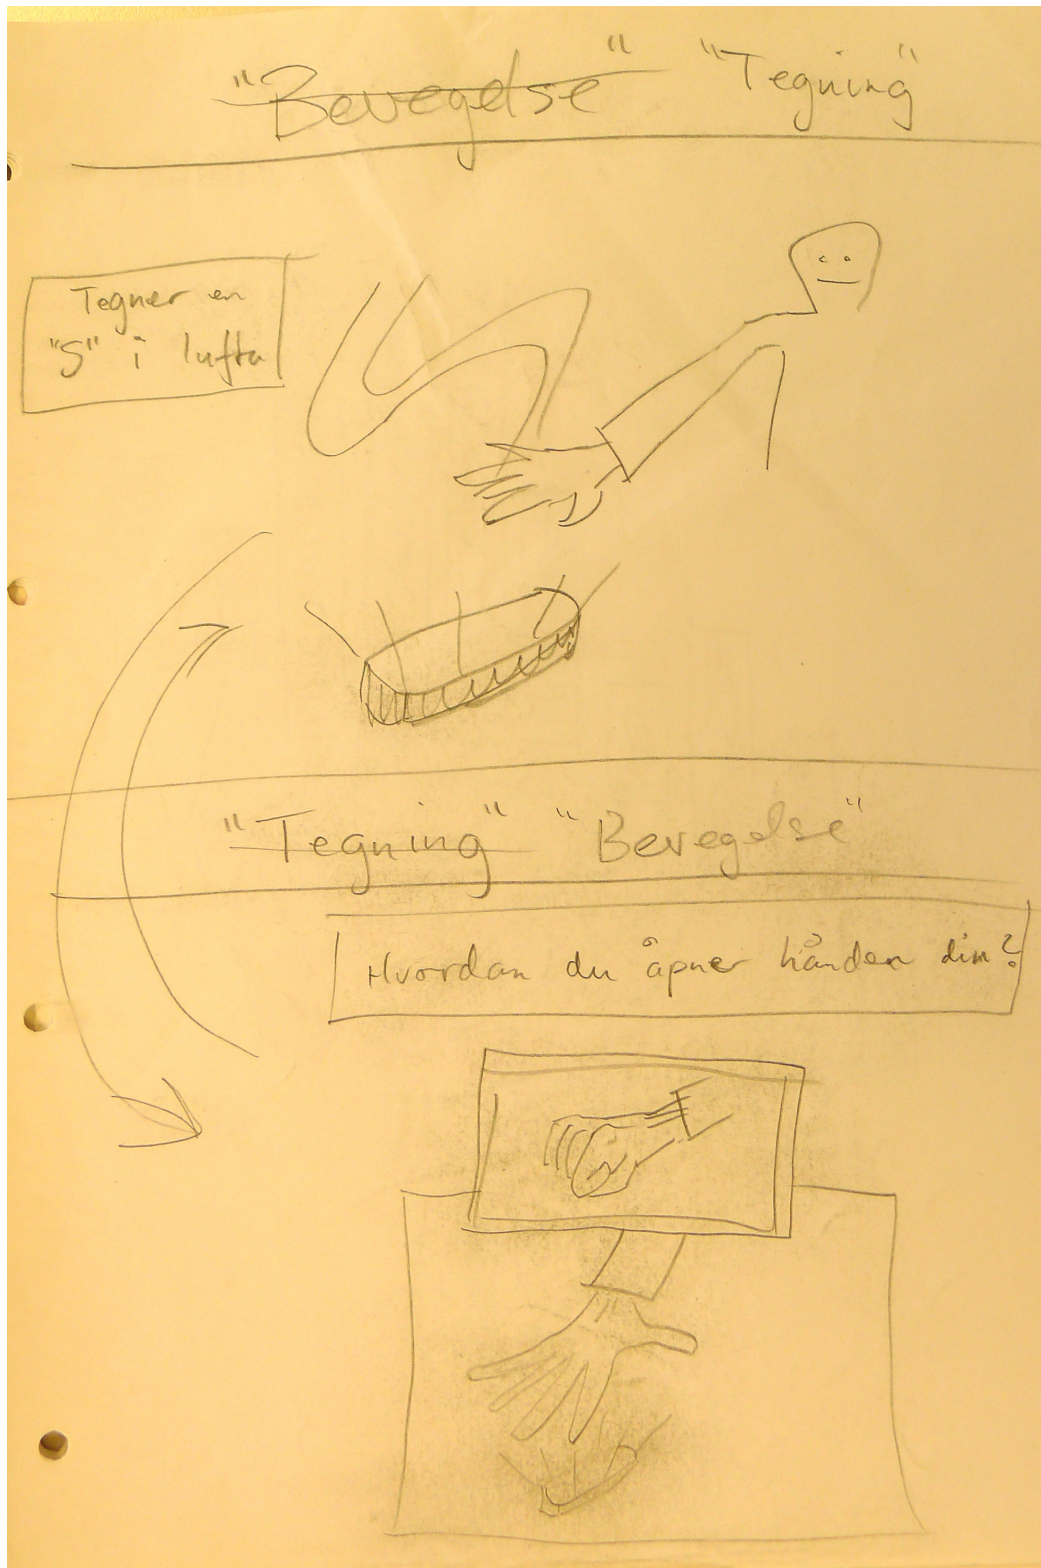 "Bevegelse" "Tegning"
Tegner en
"S" i lufta
"Tegning" "Bevegelse"
Hvordan du åpner hånden din?